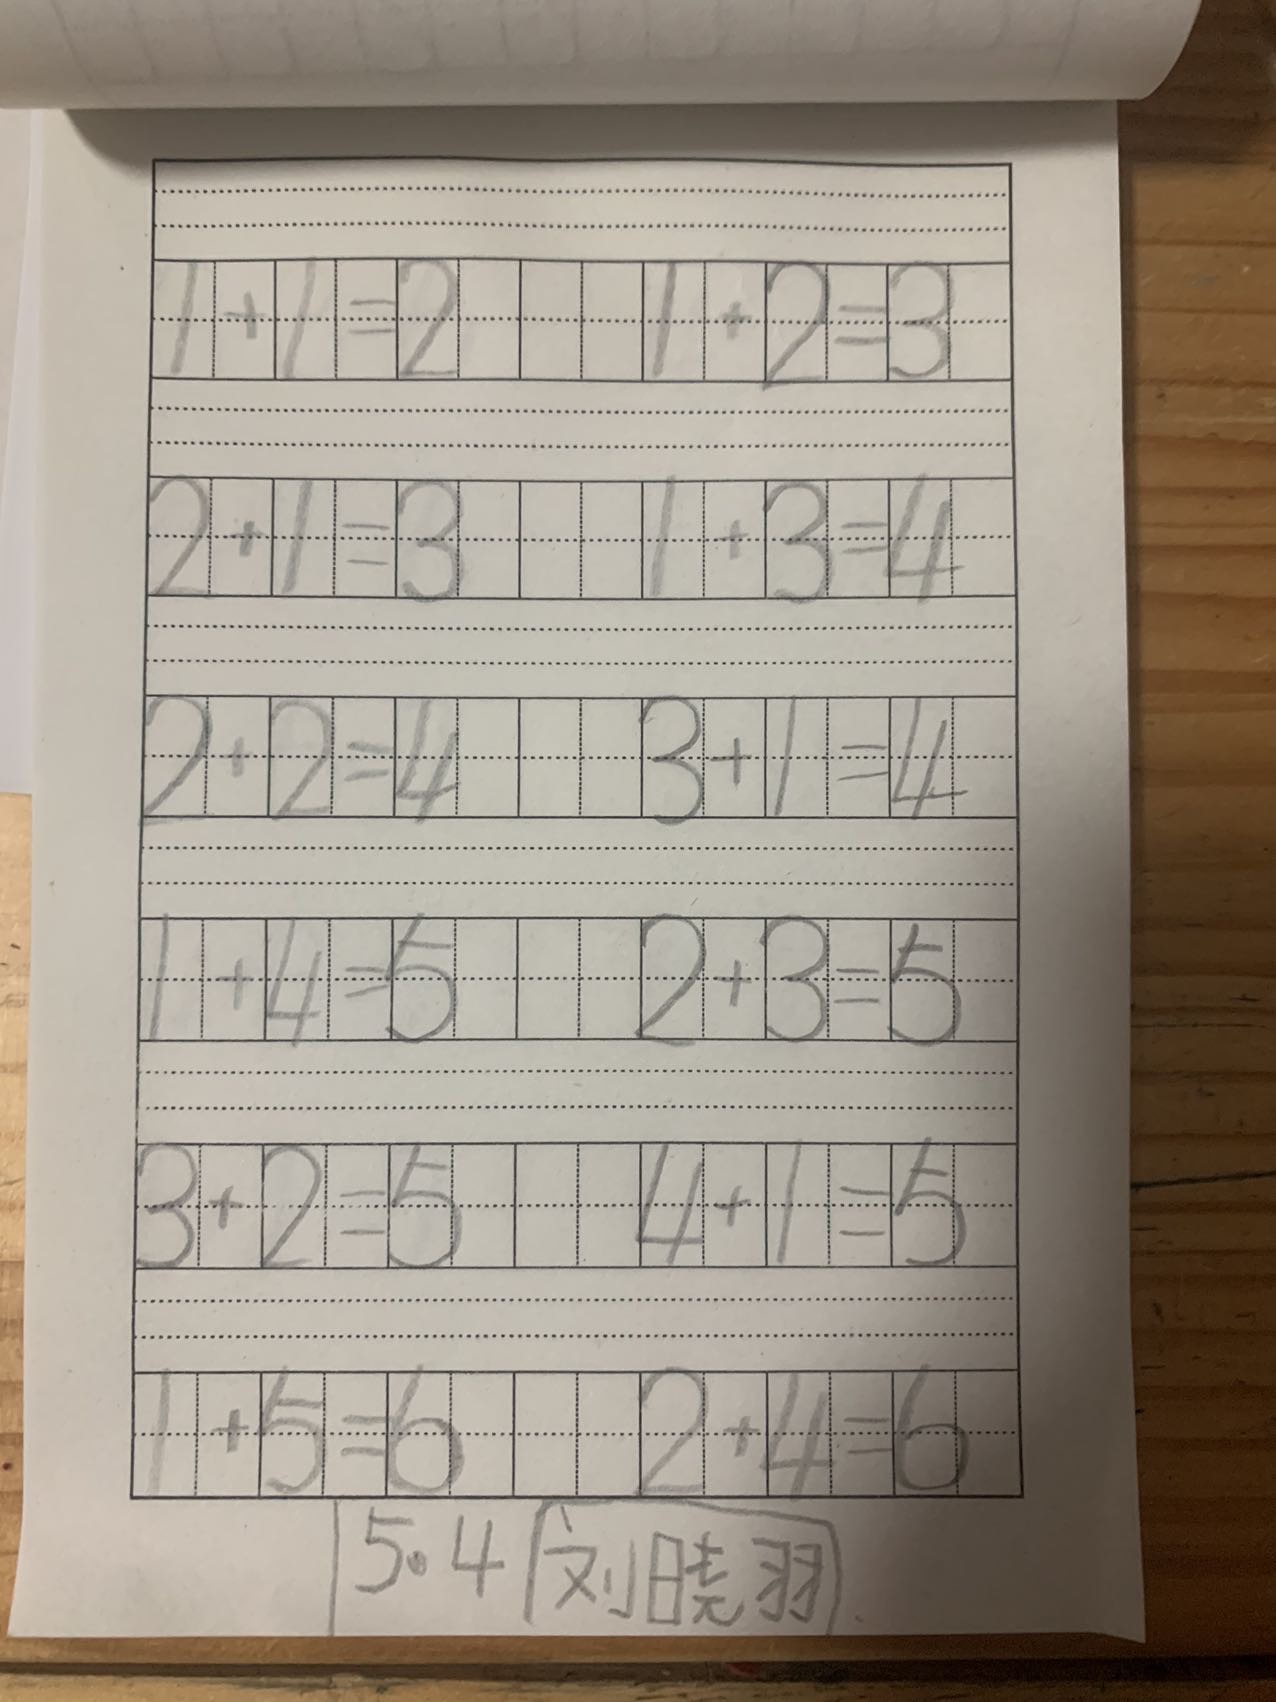 1+1=2 1+2=3
2+1=3 1+3=4
2+2=4 3+1=4
1+4=5 2+3=5
3+2=5 4+1=5
1+5=6 2+4=6
5.4 刘晓羽